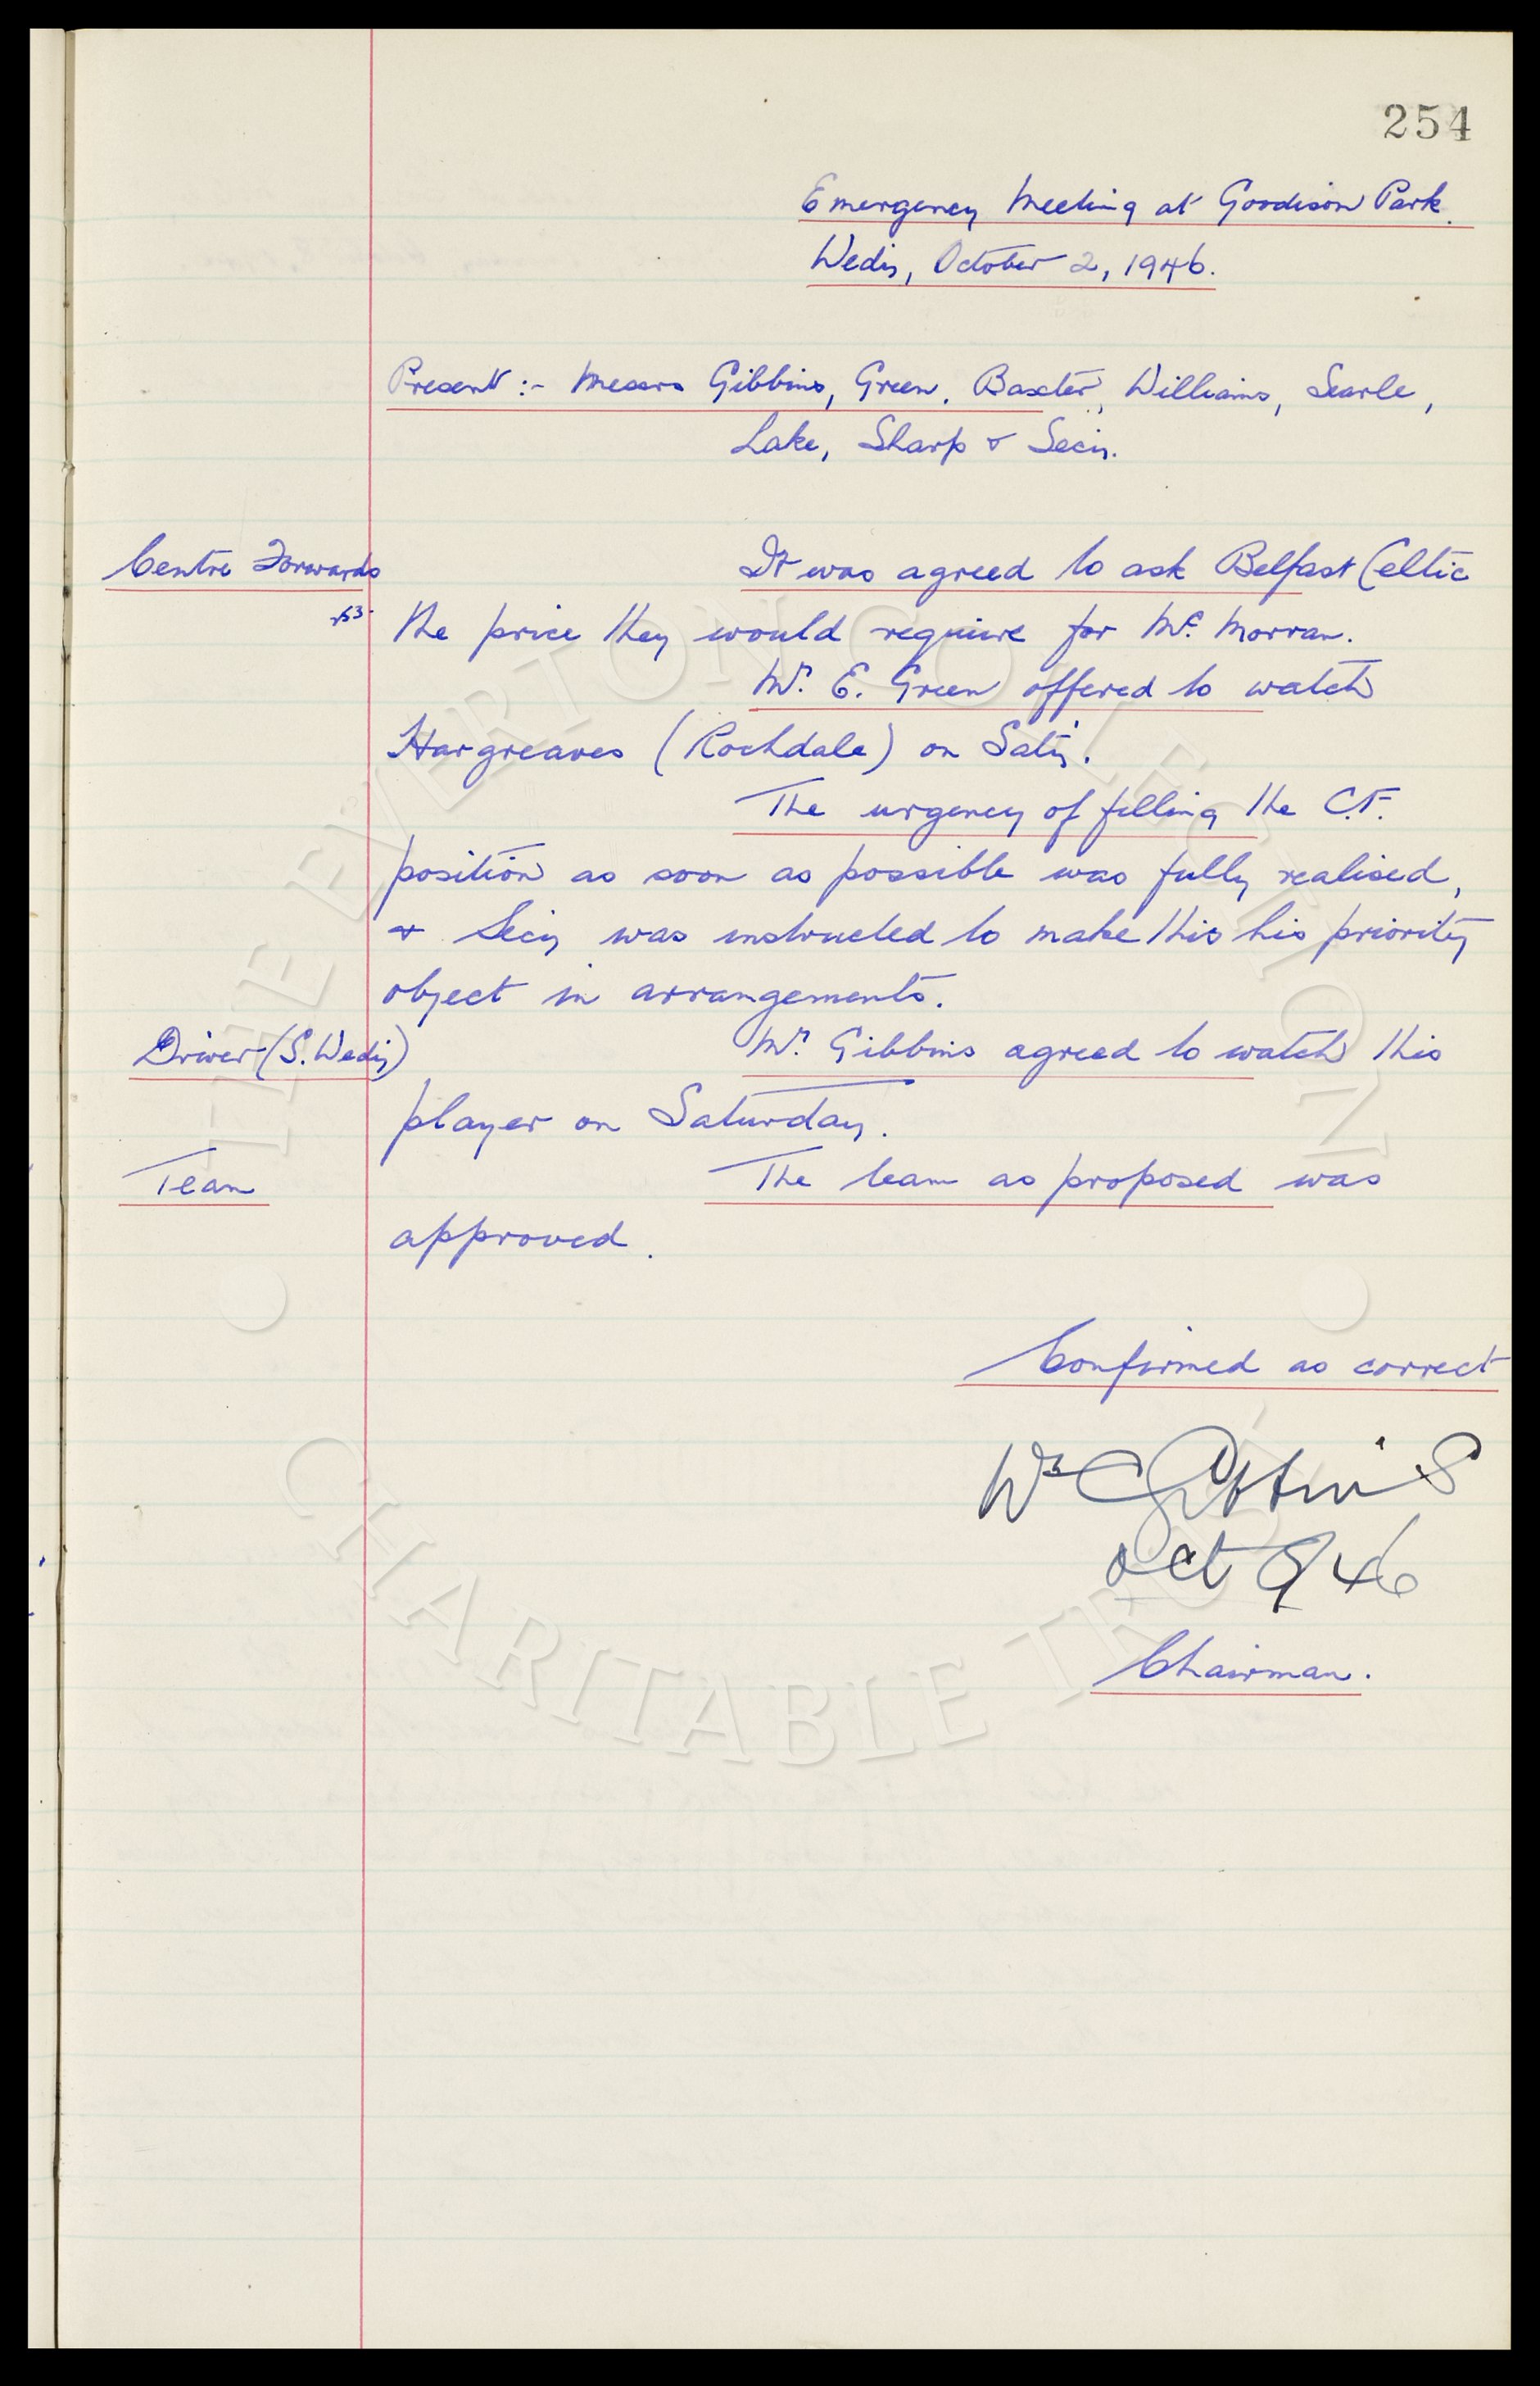 254
Emergency Meeting at Goodison Park.
Wedy, October 2, 1946.
Present :- Messrs Gibbins, Green, Baxter, Williams, Searle,
Lake, Sharp & Secy.
Centre Forwards It was agreed to ask Belfast Celtic
the price they would require for Mc. Morran.
Mr. E. Green offered to watch
Hargreaves (Rochdale) on Saty.
The urgency of filling the C.F.
position as soon as possible was fully realised,
& Secy was instructed to make this his priority
object in arrangements.
Driver (S. Wedy) Mr. Gibbins agreed to watch this
player on Saturday.
Team The team as proposed was
approved.
Confirmed as correct
Wm C Gibbins
Oct 9/46
Chairman.
THE EVERTON COLLECTION
CHARITABLE TRUST